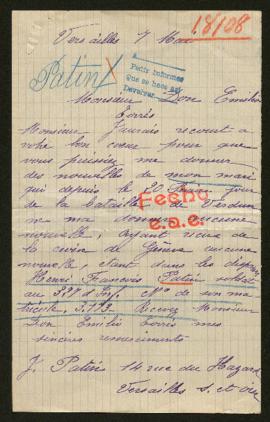 18/108
Versailles 7 Mai
Patin X
Pedir informes
que se hace así
Devolver
Monsieur Don Emilio
Torrés
Monsieur J'aurais recours a
votre bon cœur pour que
vous puissiez me donner
des nouvelles de mon mari
qui depuis le 20 jour
de la bataille de Verdun
ne ma donner aucune
nouvelle, ayant recue de
la croix de Genève aucune
nouvelle étant dans les disparus
Henri François Patin soldat
au 327 d'Inf. No de son ma
tricule 5.173. Recevez Monsieur
Don Emilio Torrés mes
sincères remerciments
Fecho
e.a.e.
J. Patin 14 rue du Hazard
Versailles S. et Oise